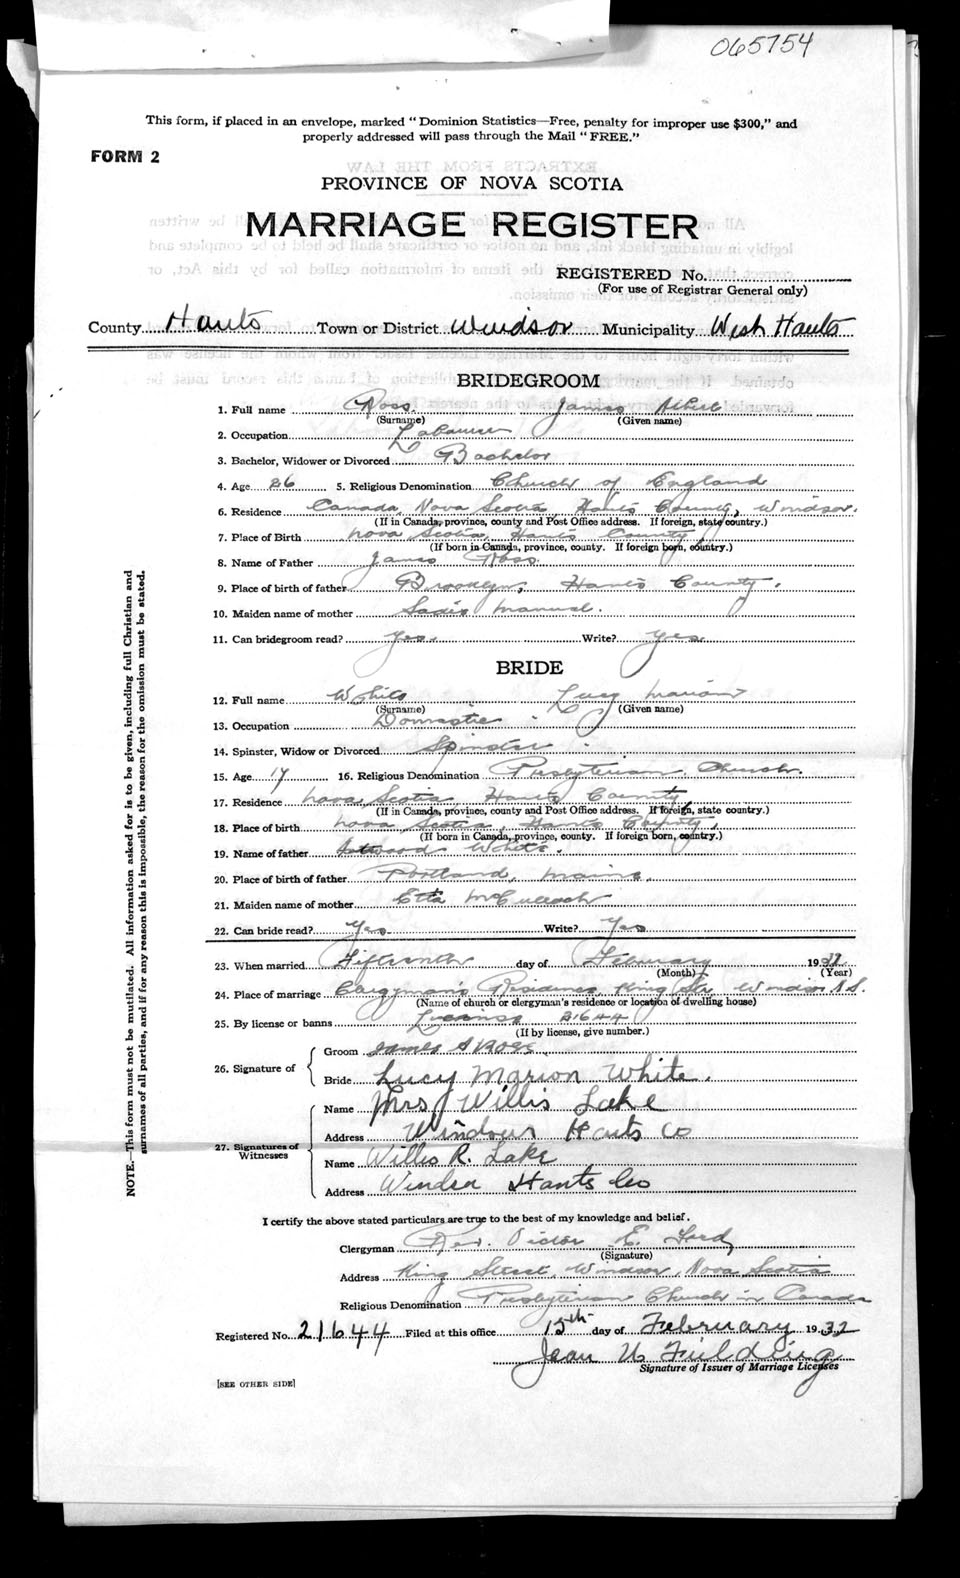 065754
This form, if placed in an envelope, marked "Dominion Statistics—Free, penalty for improper use $300," and
properly addressed will pass through the Mail "FREE."
FORM 2
PROVINCE OF NOVA SCOTIA
MARRIAGE REGISTER
REGISTERED No.
(For use of Registrar General only)
County Hants Town or District Windsor Municipality West Hants
BRIDEGROOM
1. Full name Ross James Albert
(Surname) (Given name)
2. Occupation Labourer
3. Bachelor, Widower or Divorced Bachelor
4. Age 26 5. Religious Denomination Church of England
6. Residence Canada, Nova Scotia, Hants County, Windsor.
(If in Canada, province, county and Post Office address. If foreign, state country.)
7. Place of Birth Nova Scotia, Hants County
(If born in Canada, province, county. If foreign born, country.)
8. Name of Father James Ross.
9. Place of birth of father Brooklyn, Hants County.
10. Maiden name of mother Sadie Manual.
11. Can bridegroom read? Yes. Write? Yes
BRIDE
12. Full name White Lucy Marion
(Surname) (Given name)
13. Occupation Domestic
14. Spinster, Widow or Divorced Spinster
15. Age 17 16. Religious Denomination Presbyterian Church.
17. Residence Nova Scotia Hants County
(If in Canada, province, county and Post Office address. If foreign, state country.)
18. Place of birth Nova Scotia, Hants County,
(If born in Canada, province, county. If foreign born, country.)
19. Name of father White.
20. Place of birth of father Portland, Maine.
21. Maiden name of mother Etta McCulloch
22. Can bride read? Yes Write? Yes
23. When married Fifteenth day of February 1932
(Month) (Year)
24. Place of marriage Clergyman's Residence, King St., Windsor N.S.
(Name of church or clergyman's residence or location of dwelling house)
25. By license or banns License 21644
(If by license, give number.)
26. Signature of
Groom James A Ross
Bride Lucy Marion White.
27. Signatures of Witnesses
Name Mrs Willis Lake
Address Windsor Hants Co
Name Willis R. Lake
Address Windsor Hants Co
NOTE.—This form must not be mutilated. All information asked for is to be given, including full Christian and
surnames of all parties, and if for any reason this is impossible, the reason for the omission must be stated.
I certify the above stated particulars are true to the best of my knowledge and belief.
Clergyman Rev. Victor E. Ford
(Signature)
Address King Street, Windsor, Nova Scotia
Religious Denomination Presbyterian Church in Canada
Registered No. 21644 Filed at this office 15th day of February 1932
Jean Fielding
Signature of Issuer of Marriage Licenses
[SEE OTHER SIDE]